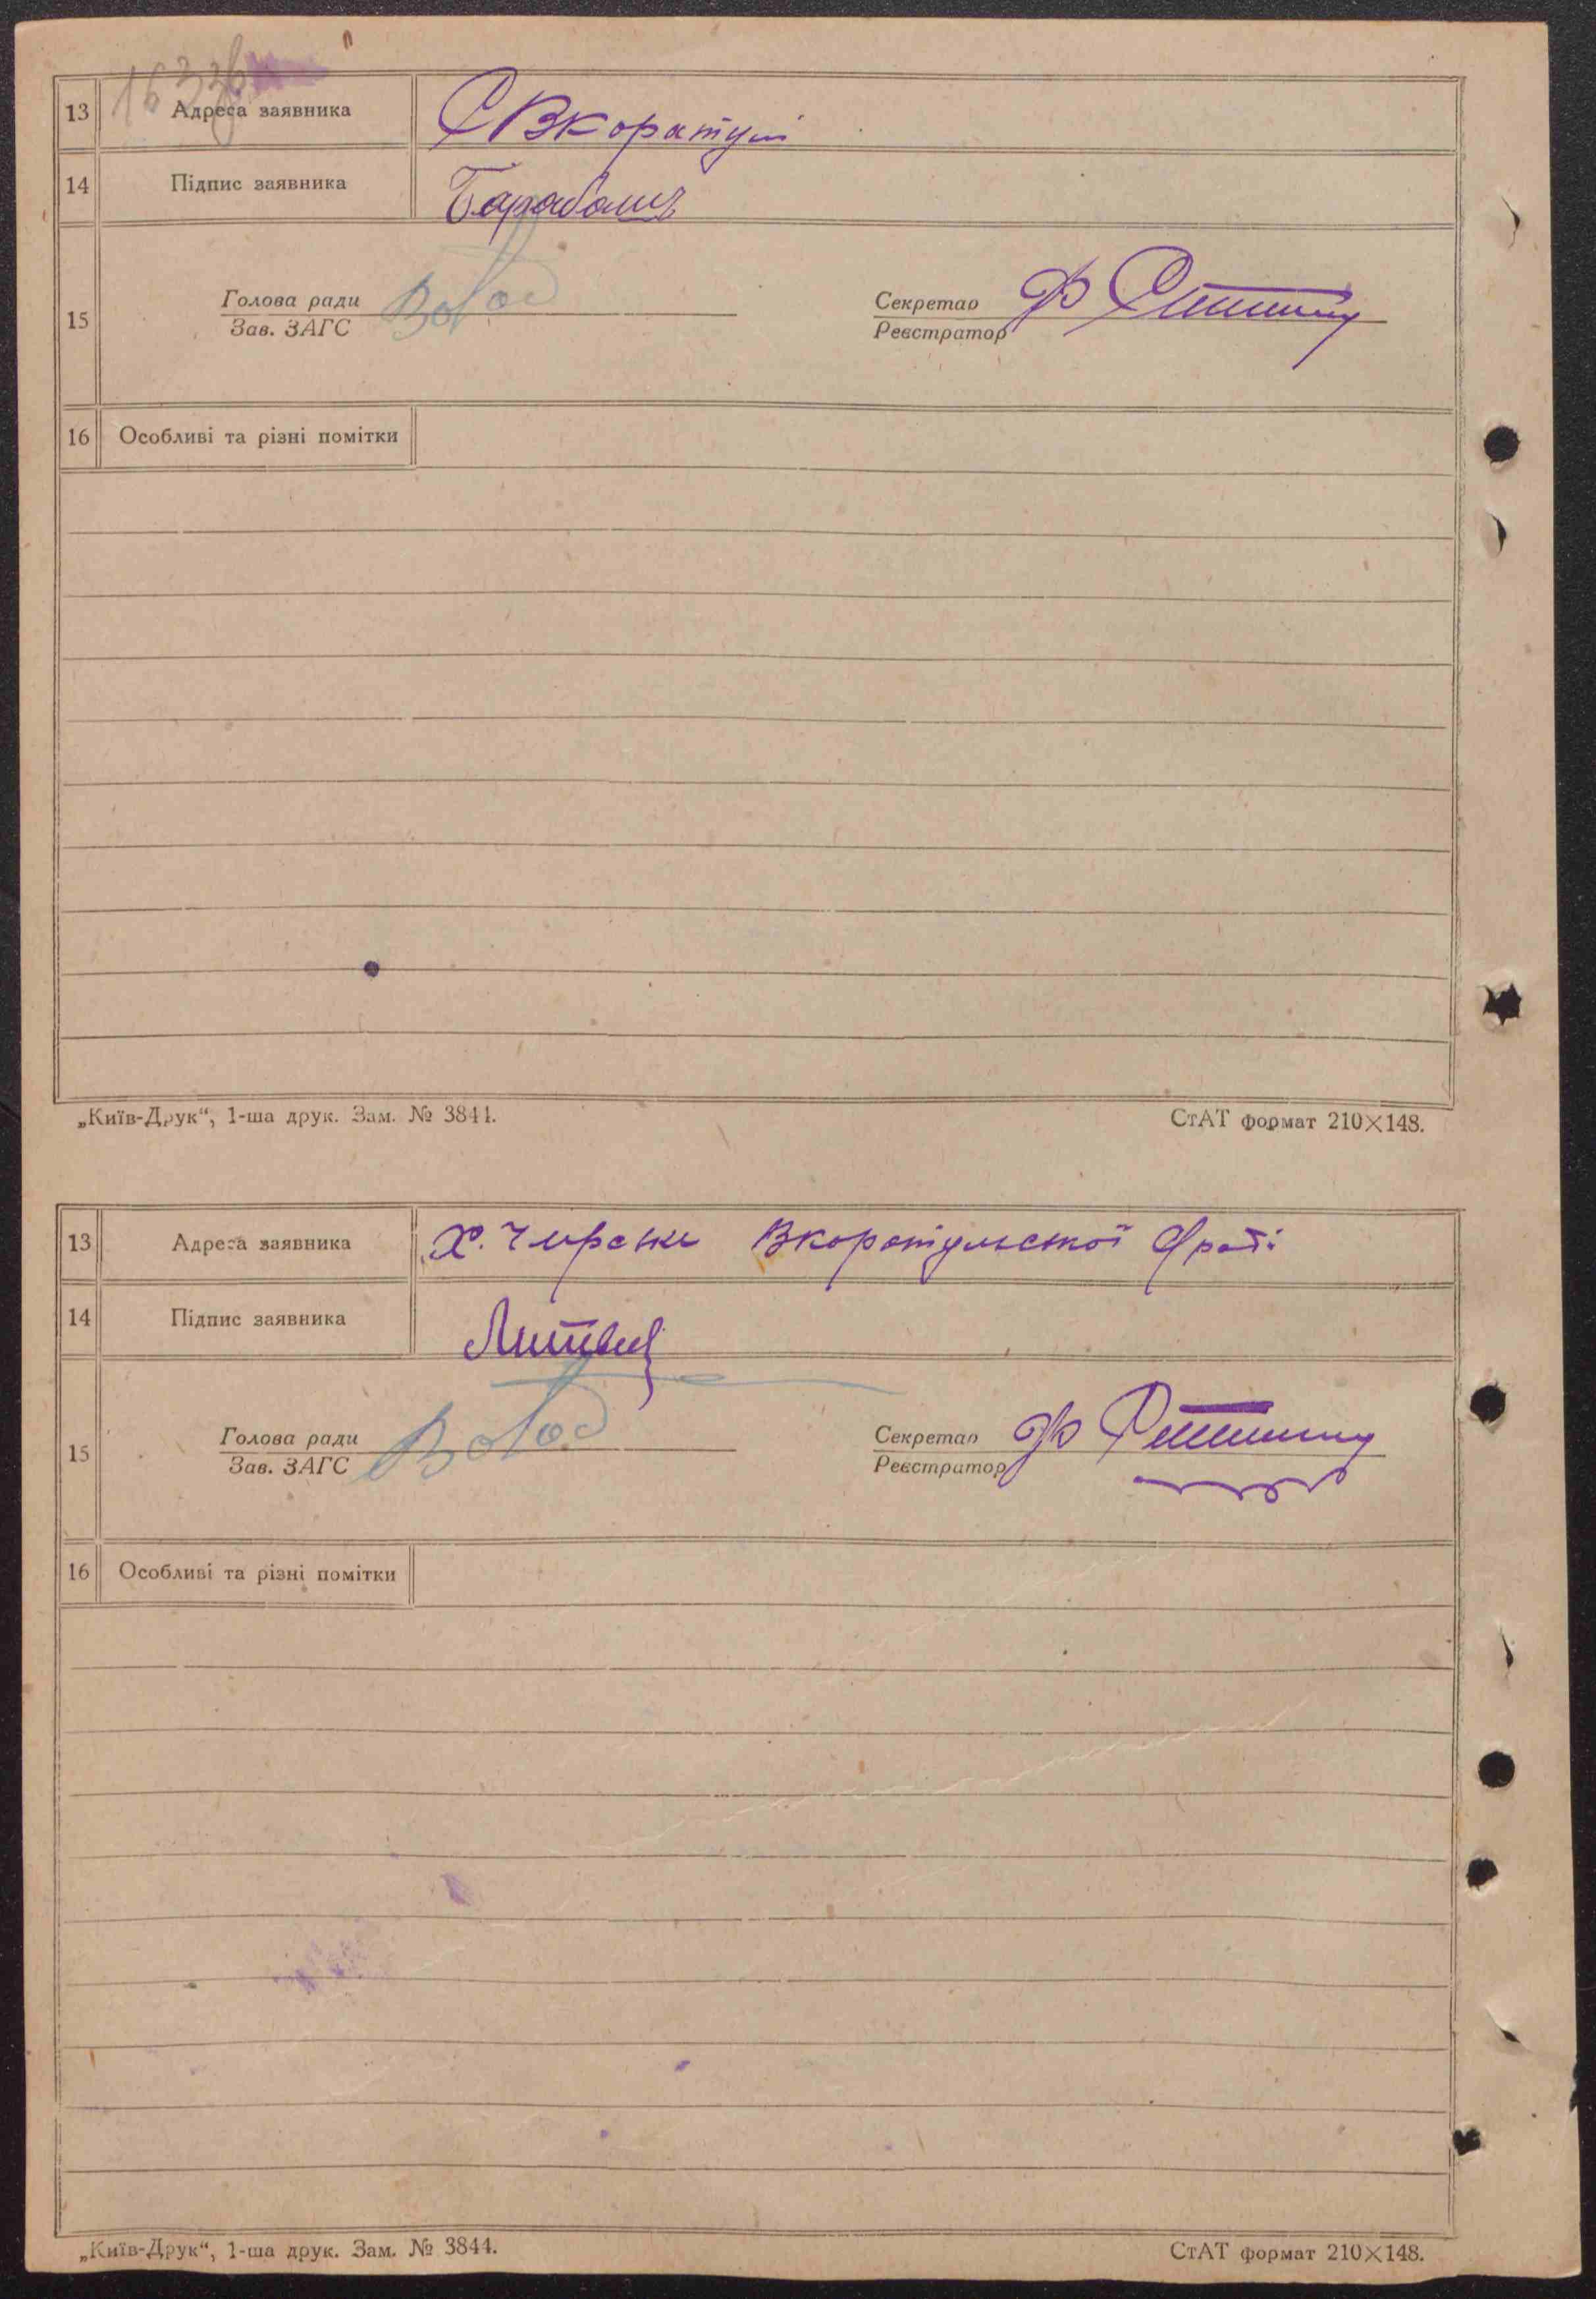 163 зв
13 Адреса заявника С Вкоратулі
14 Підпис заявника Барабаш
15 Голова ради Секретар
Зав. ЗАГС Реєстратор
16 Особливі та різні помітки
„Київ-Друк“, 1-ша друк. Зам. № 3844. СтАТ формат 210×148.
13 Адреса заявника Х. Вкоратульської
14 Підпис заявника Литвин
15 Голова ради Секретар
Зав. ЗАГС Реєстратор
16 Особливі та різні помітки
„Київ-Друк“, 1-ша друк. Зам. № 3844. СтАТ формат 210×148.